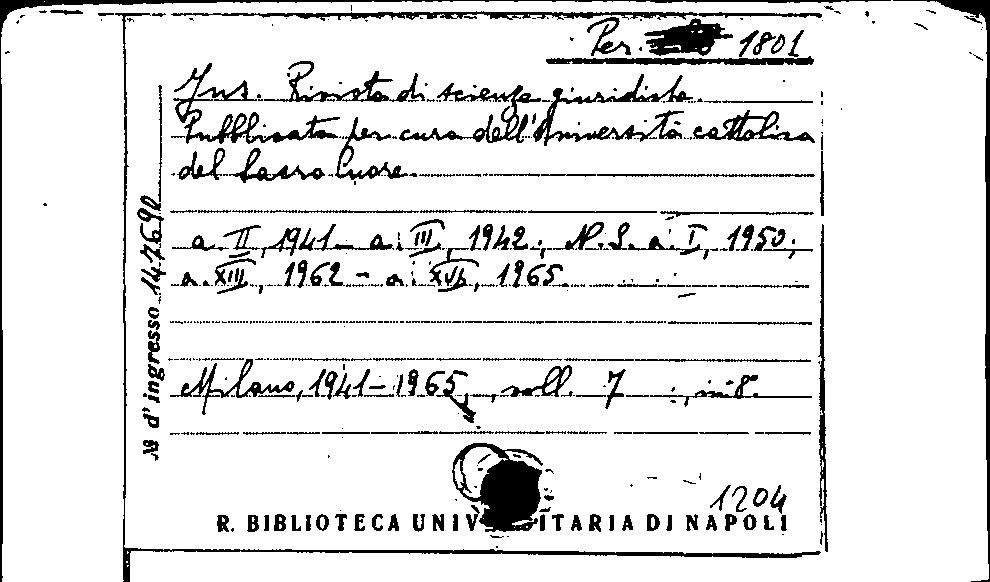 Per. 1801
Jus. Rivista di scienze giuridiche.
Pubblicata per cura dell'Università cattolica
del Sacro Cuore.
a. II, 1941 - a. III, 1942; N.S. a. I, 1950;
a. XIII, 1962 - a. XVI, 1965.
Milano, 1941-1965, voll. 7 , in-8°.
No d'ingresso 147690
1204
R. BIBLIOTECA UNIVERSITARIA DI NAPOLI